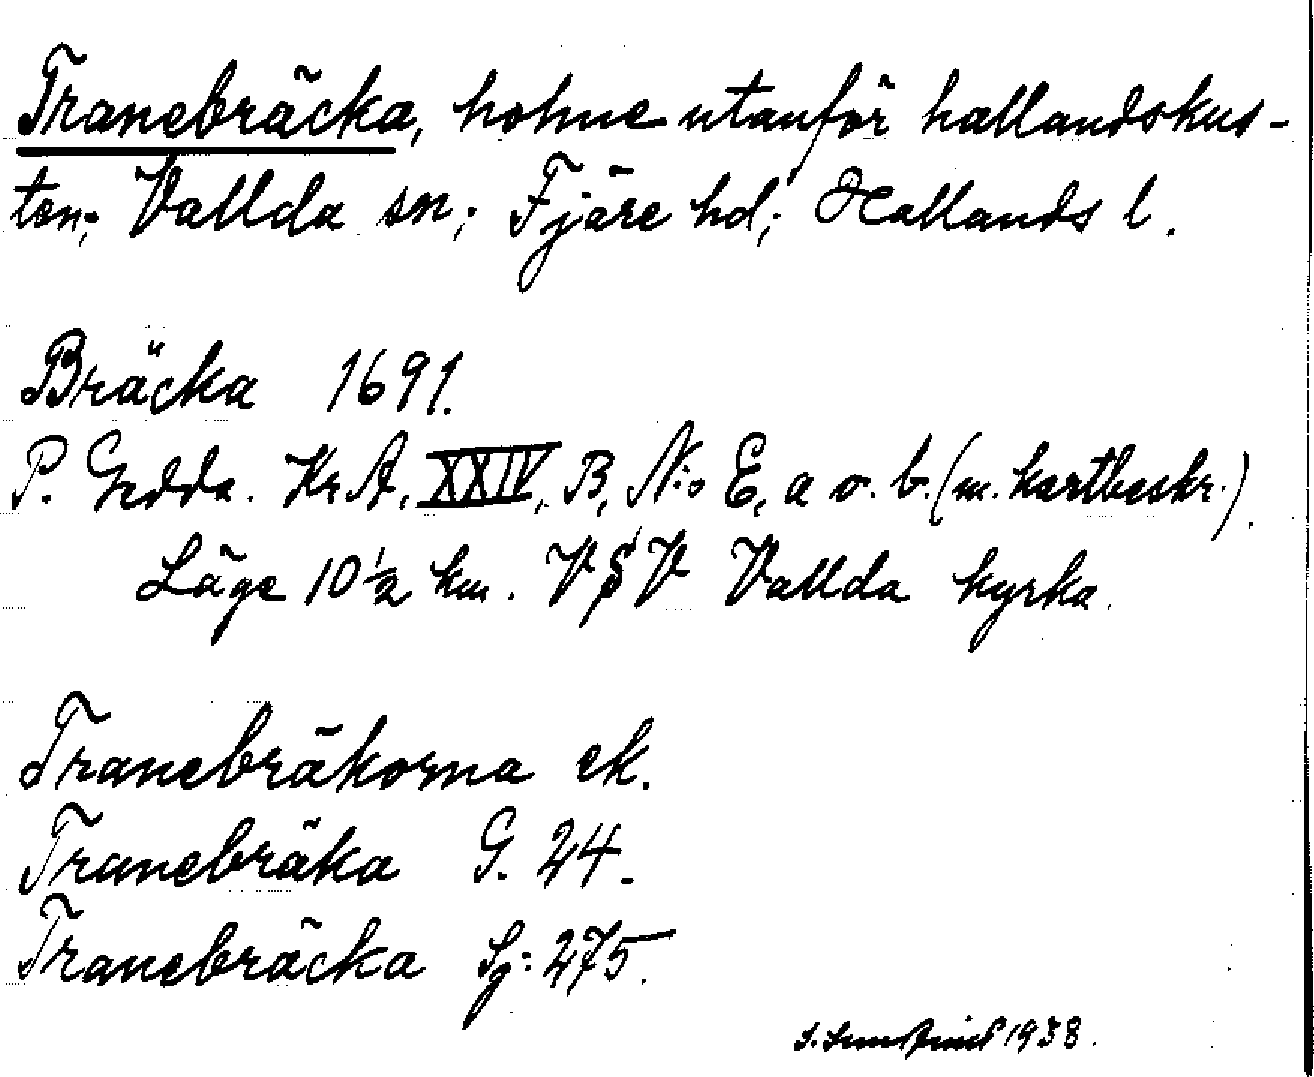 Tranebräcka, holme utanför hallandskus-
ten; Vallda sn; Fjäre hd; Hallands l.
Bräcka 1691.
P. Gedda. Kr A, XXIV, B, N:o E, a o. b. (m. kartbeskr.).
Läge 10 1/2 km. VSV Vallda kyrka.
Tranebräkorna ek.
Tranebräka G. 24.
Tranebräcka Sj: 275.
1938.